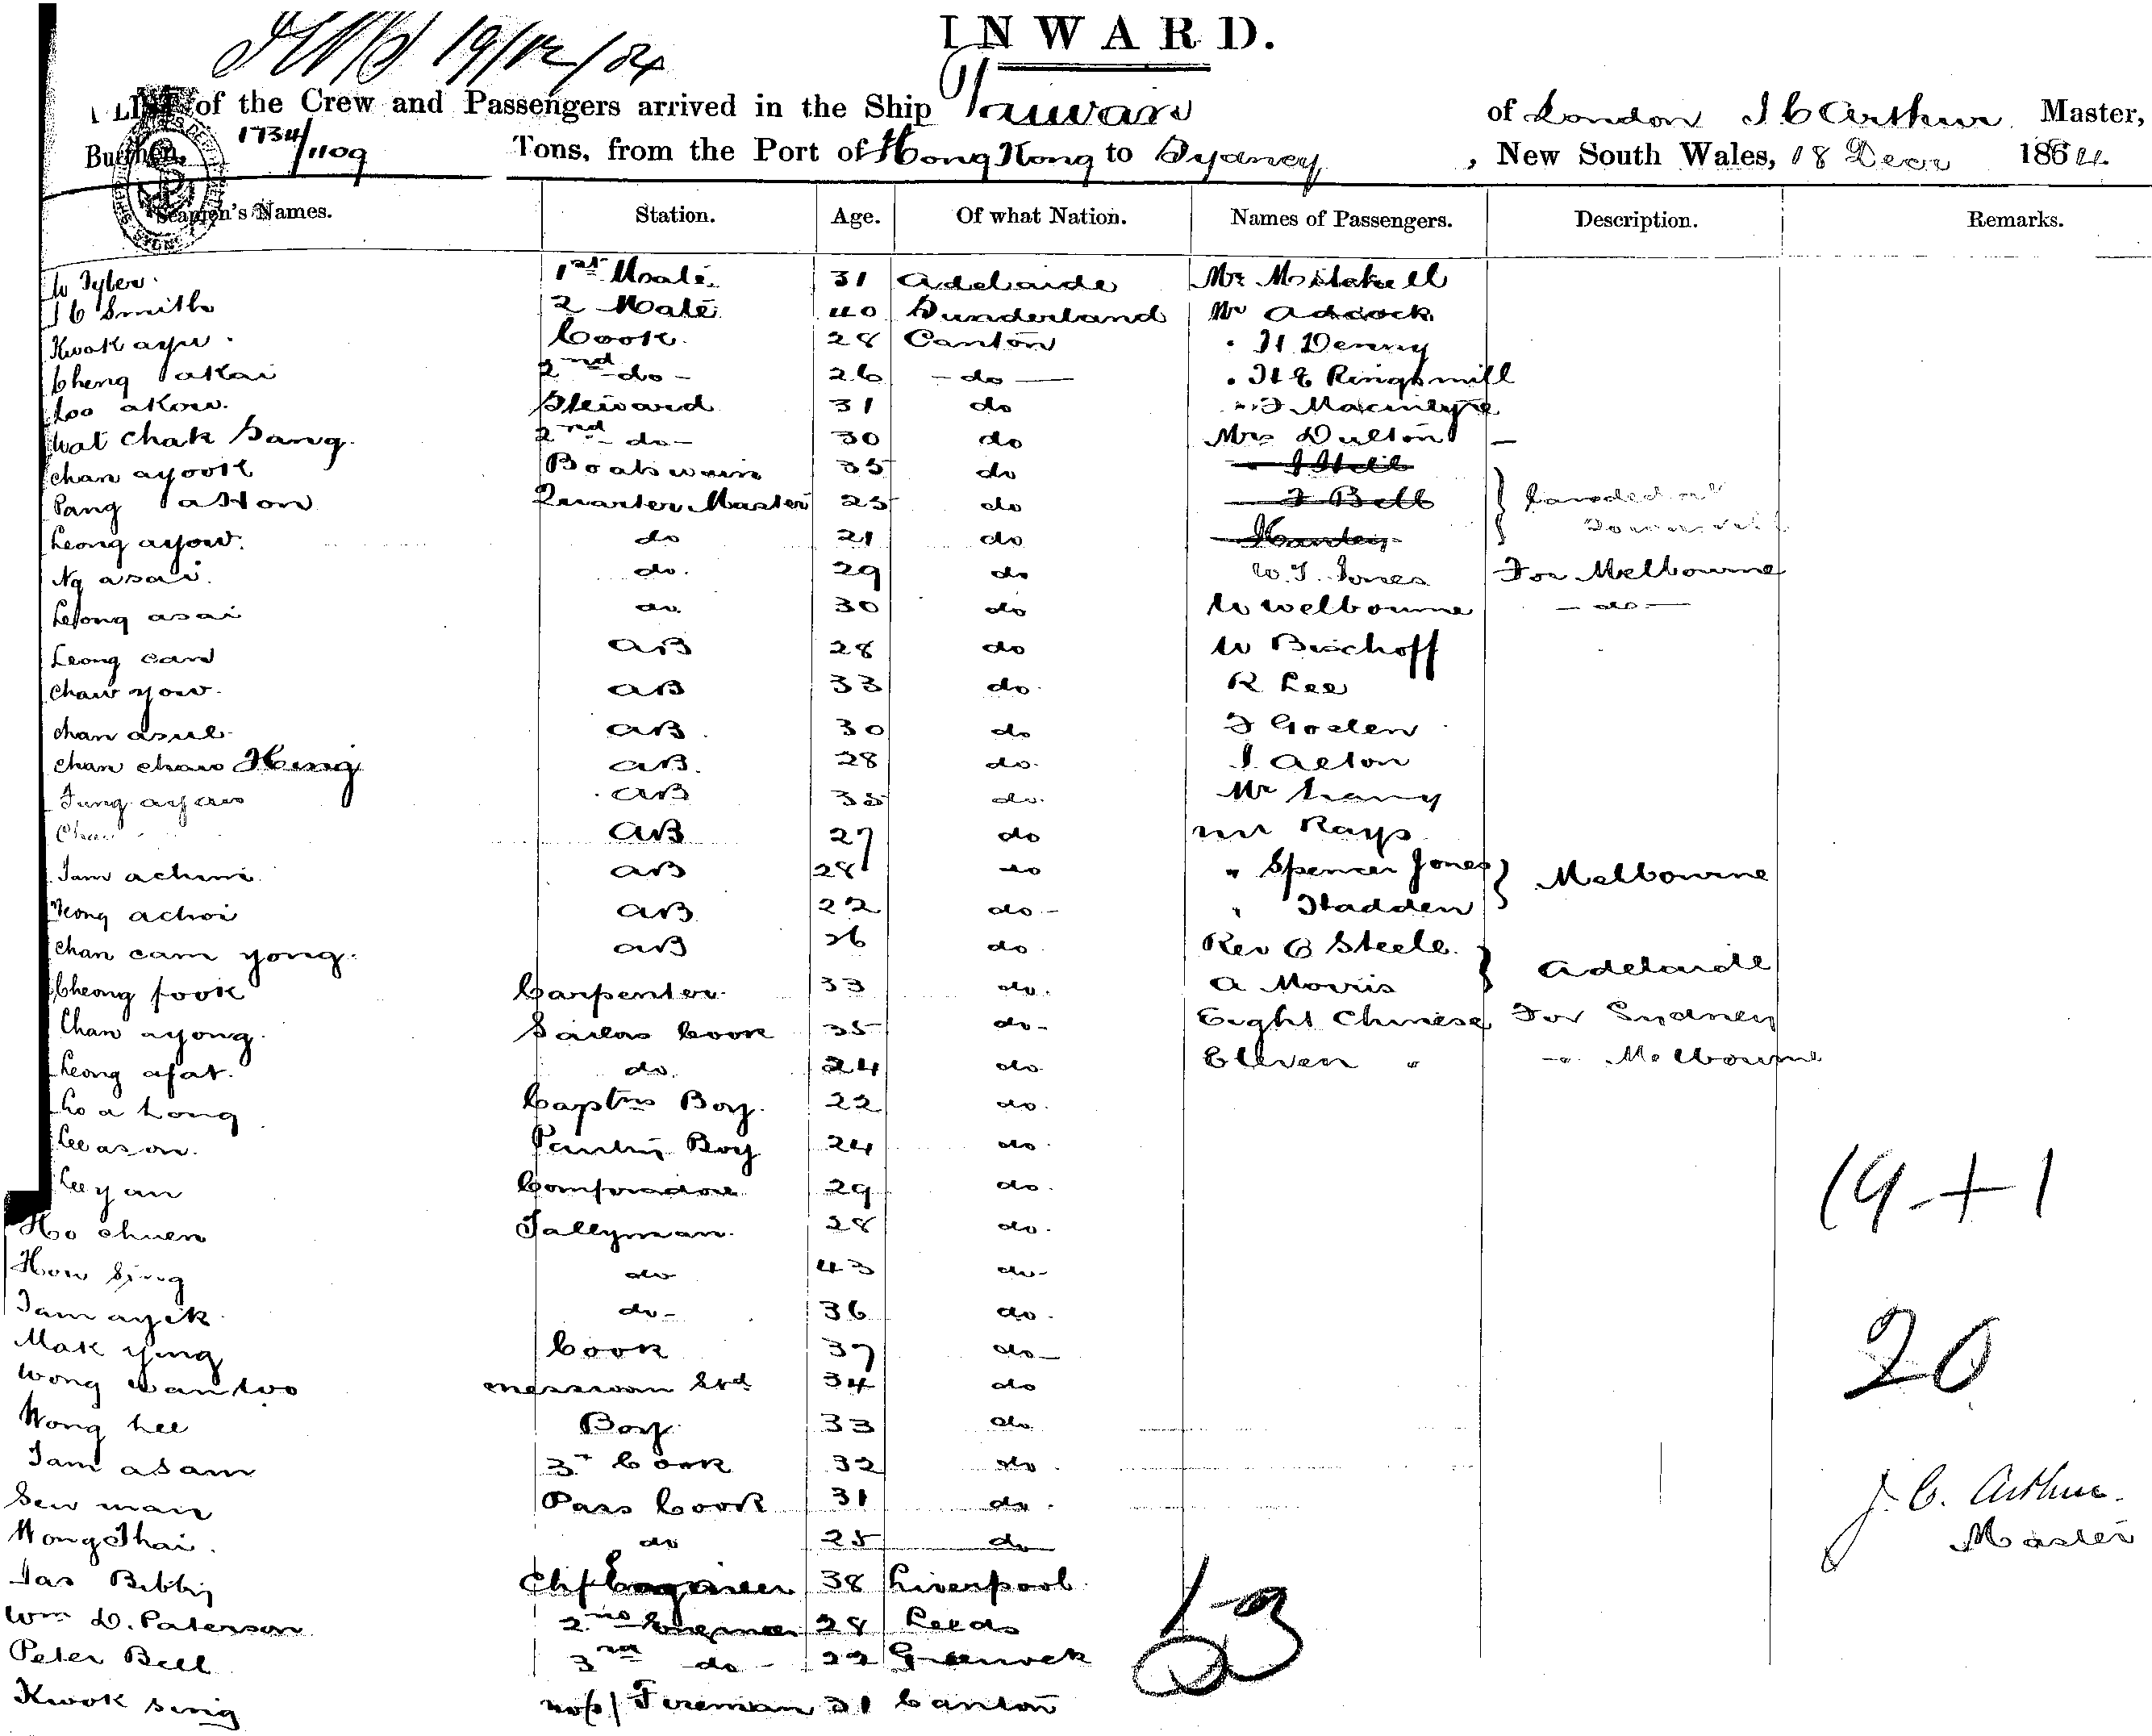 INWARD.
19/12/84
LIST of the Crew and Passengers arrived in the Ship Taiwan of London J C Arthur Master,
Burthen, 1734/1109 Tons, from the Port of Hong Kong to Sydney, New South Wales, 18 Decr 1884
Seamen's Names. Station. Age. Of what Nation. Names of Passengers. Description. Remarks.
W Tyler 1st Mate 31 Adelaide Mr Mitchell
J C Smith 2 Mate 40 Sunderland Mr Adcock
Kwok ayu Cook 28 Canton " H Denny
Cheng akai 2nd do 26 do " H E Ringsmill
Loo akow Steward 31 do " J Macintyre
Wat Chak Sang 2nd do 30 do Mrs Dulton
Chan ayook Boatswain 35 do
Pang aHon Quarter Master 25 do J Bell Landed at
Leong ayow do 21 do
Ng asai do 29 do W. J. Jones For Melbourne
Leong asai do 30 do W Welbourne do
Leong can AB 28 do W Bischoff
Chaw yow AB 33 do R Lee
Chan asul AB 30 do J Goslen
Chan chaw Hing AB 28 do J. Acton
Fung ayaw AB 35 do Mr
Chan AB 27 do Mr Rays
Tam achun AB 28 do " Spencer Jones } Melbourne
Yeong achoi AB 22 do " Hadden
Chan cam yong AB 26 do Rev C Steele } Adelaide
Cheong fook Carpenter 33 do A Morris
Chan ayong Sailors Cook 35 do Eight Chinese For Sydney
Leong afat do 24 do Eleven " " Melbourne
Lo a Long Captns Boy 22 do
Lee ason Pantry Boy 24 do
Lee yan Compradore 29 do 19 + 1
Ho chuen Tallyman 28 do
How Sing do 43 do
Tam ayek do 36 do 20
Mak ying Cook 37 do
Wong wan two messroom Std 34 do
Wong Lee Boy 33 do
Tam asam 3r Cook 32 do
Sew man Pass Cook 31 do J. C. Arthur
Wong Thai do 25 do Master
Jas Bibby Chf Engineer 38 Liverpool
Wm D. Paterson 2nd Engineer 28 Leeds 53
Peter Bell 3rd do 22 Greenock
Kwok sing No / Fireman 31 Canton